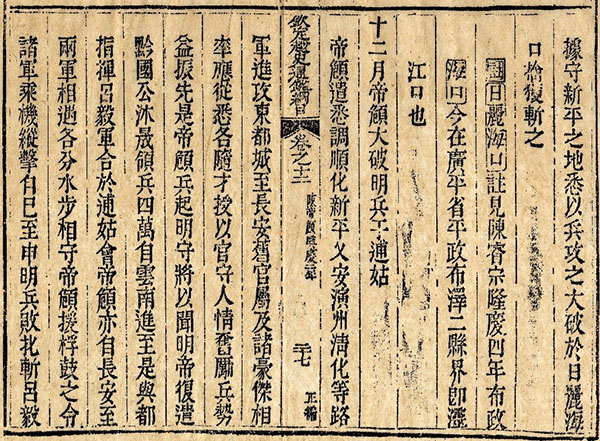 據守新平之地悉以兵攻之大破於日麗海
口擒獲斬之
註日麗海口註見陳睿宗隆慶四年布政
海口今在廣平省平政布澤二縣界即瀅
江口也
十二月帝頠大破明兵于逋姑
帝頠遣悉調順化新平乂安演州清化等路
欽定越史通鑑綱目 卷之十二 陳帝頠興慶二年 正編
軍進攻東都城至長安舊官屬及諸豪傑相
率應從悉各隨才授以官守人情奮厲兵勢
益振先是帝頠兵起明守將以聞明帝復遣
黔國公沐晟領兵四萬自雲南進至是與都
指揮呂毅軍合於逋姑會帝頠亦自長安至
兩軍相遇各分水步相守帝頠援桴鼓之令
諸軍乘機縱擊自巳至申明兵敗北斬呂毅